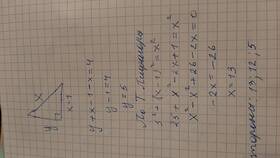 x
y
x-1
y+x-1-x=4
y-1=4
y=5
По Т. Пифагора
5²+(x-1)²=x²
25+x²-2x+1=x²
x²-x²+26-2x=0
-2x=-26
x=13
стороны 13; 12; 5